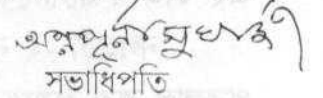 অন্নপূর্না মুখার্জী
সভাধিপতি